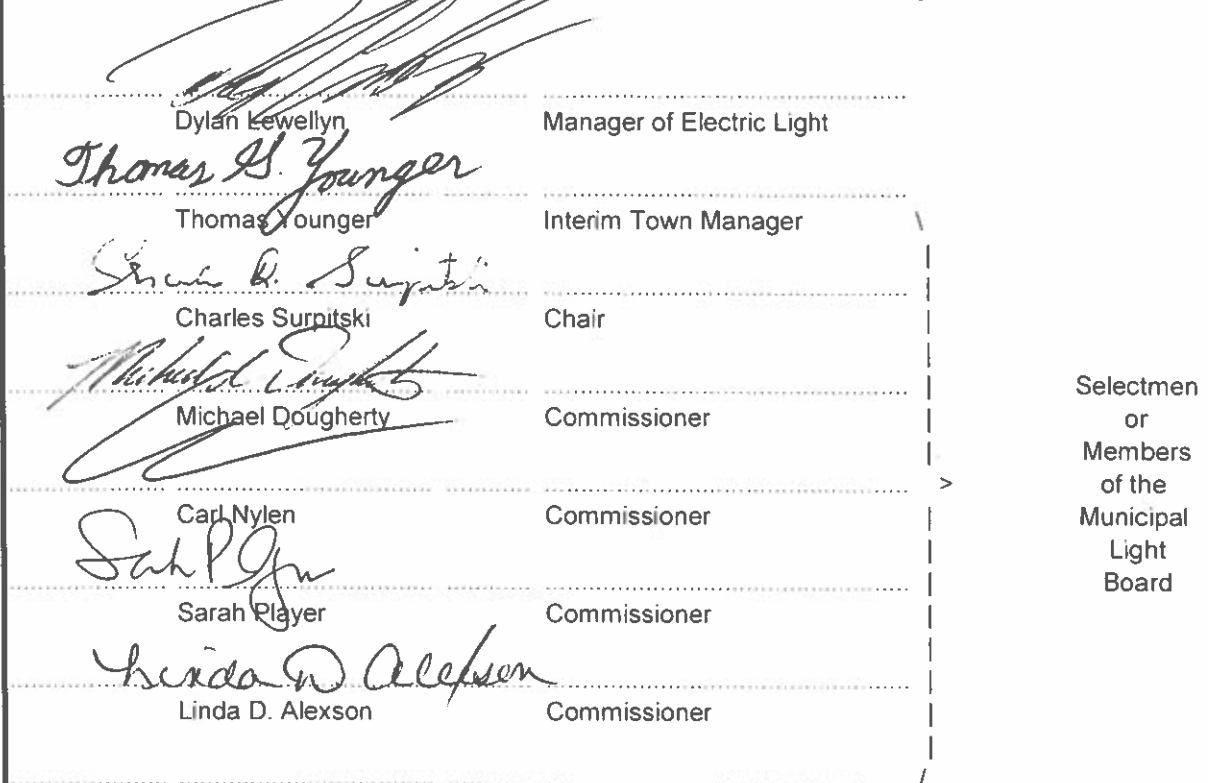 Dylan Lewellyn Manager of Electric Light
Thomas G. Younger
Thomas Younger Interim Town Manager
Charles Surpitski Chair
Michael Dougherty Commissioner
Carl Nylen Commissioner
Sarah Player Commissioner
Linda D Alexson
Linda D. Alexson Commissioner
>
Selectmen
or
Members
of the
Municipal
Light
Board